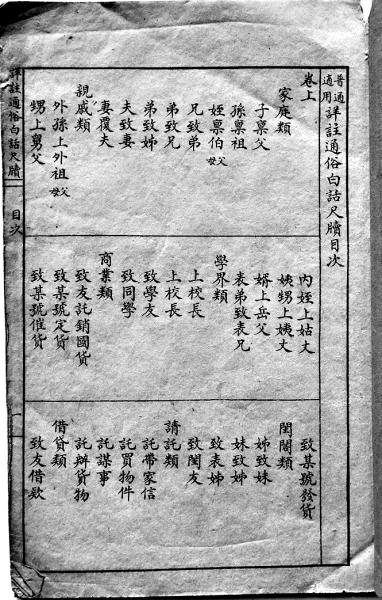 普通
適用
詳註通俗白話尺牘目次
卷上
家庭類
子稟父
孫稟祖
姪稟伯父母
兄致弟
弟致兄
弟致姊
夫致妻
妻覆夫
親戚類
外孫上外祖父母
甥上舅父
內姪上姑丈
姨甥上姨丈
婿上岳父
表弟致表兄
學界類
上校長
上校長
致學友
致同學
商業類
致友託銷國貨
致某號定貨
致某號催貨
致某號發貨
閨閣類
姊致妹
妹致姊
致表姊
致閨友
請託類
託帶家信
託買物件
託謀事
託辦貨物
借貸類
致友借款
詳註通俗白話尺牘
目次
一